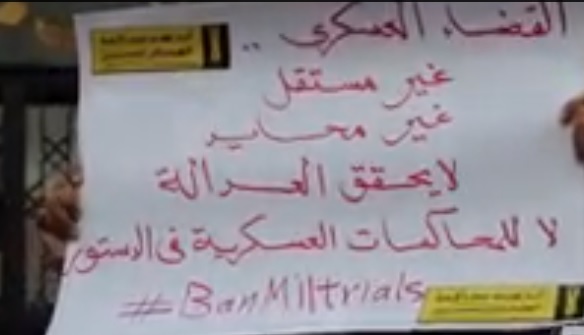 القضاء العسكري ..
غير مستقل
غير محايد
لا يحقق العدالة
لا للمحاكمات العسكرية في الدستور
#BanMiltrials